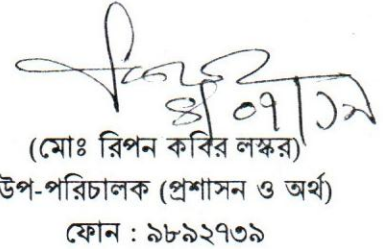 ৪/০৭/১৯
(মোঃ রিপন কবির লস্কর)
উপ-পরিচালক (প্রশাসন ও অর্থ)
ফোন : ৯৮৯২৭৩৯